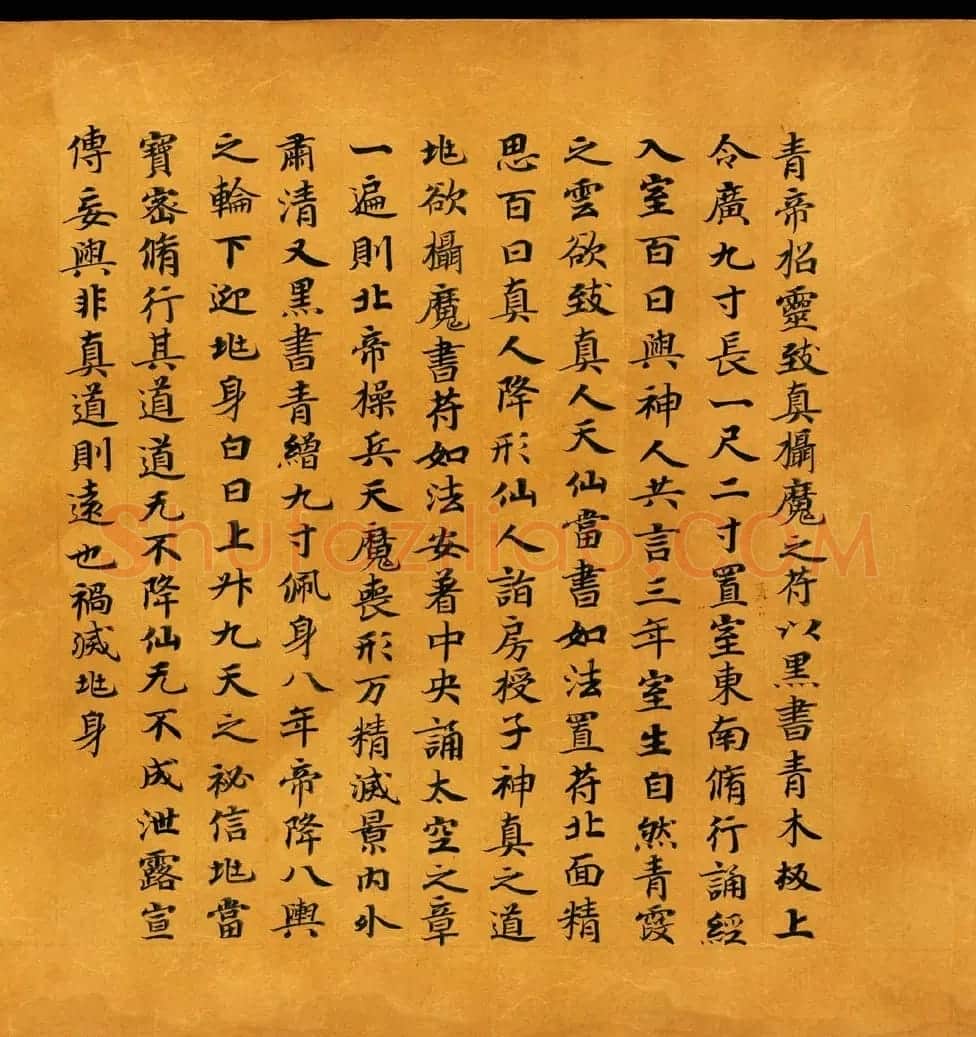 青帝招靈致真攝魔之苻以黑書青木板上
令廣九寸長一尺二寸置室東南脩行誦經
入室百日與神人共言三年室生自然青霞
之雲欲致真人天仙當書如法置苻北面精
思百日真人降形仙人詣房授子神真之道
地欲攝魔書苻如法安著中央誦太空之章
一遍則北帝操兵天魔喪形万精滅景內外
肅清又黑書青繒九寸佩身八年帝降八輿
之輪下迎地身白日上升九天之祕信地當
寶密脩行其道道无不降仙无不成泄露宣
傳妄與非真道則遠也禍滅地身
Shufaziliao.COM